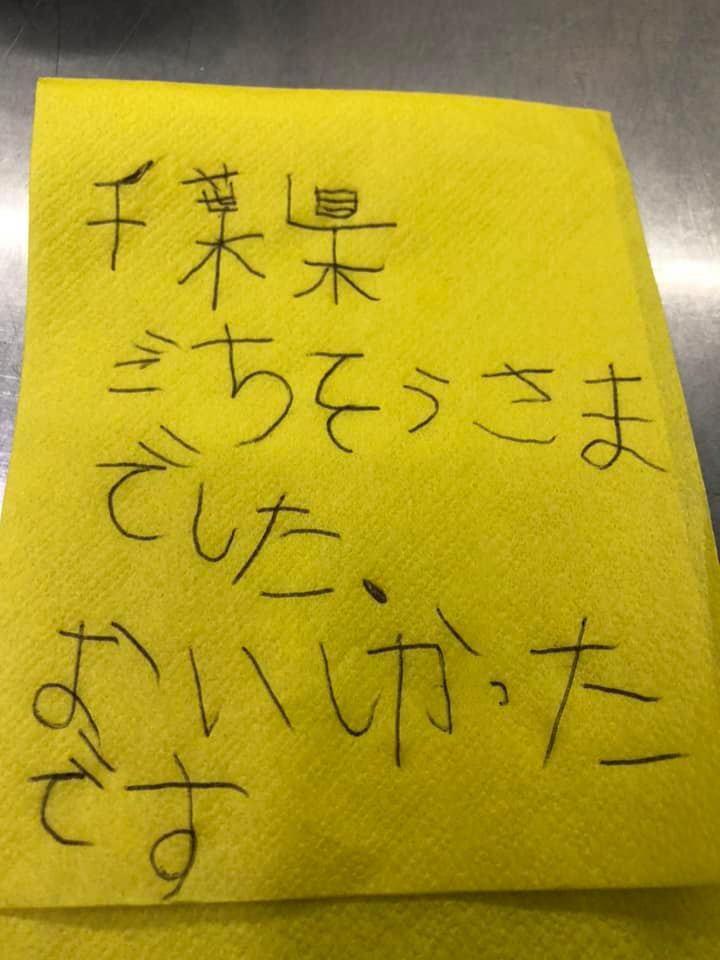 千葉県
ごちそうさま
でした、
おいしかった
です